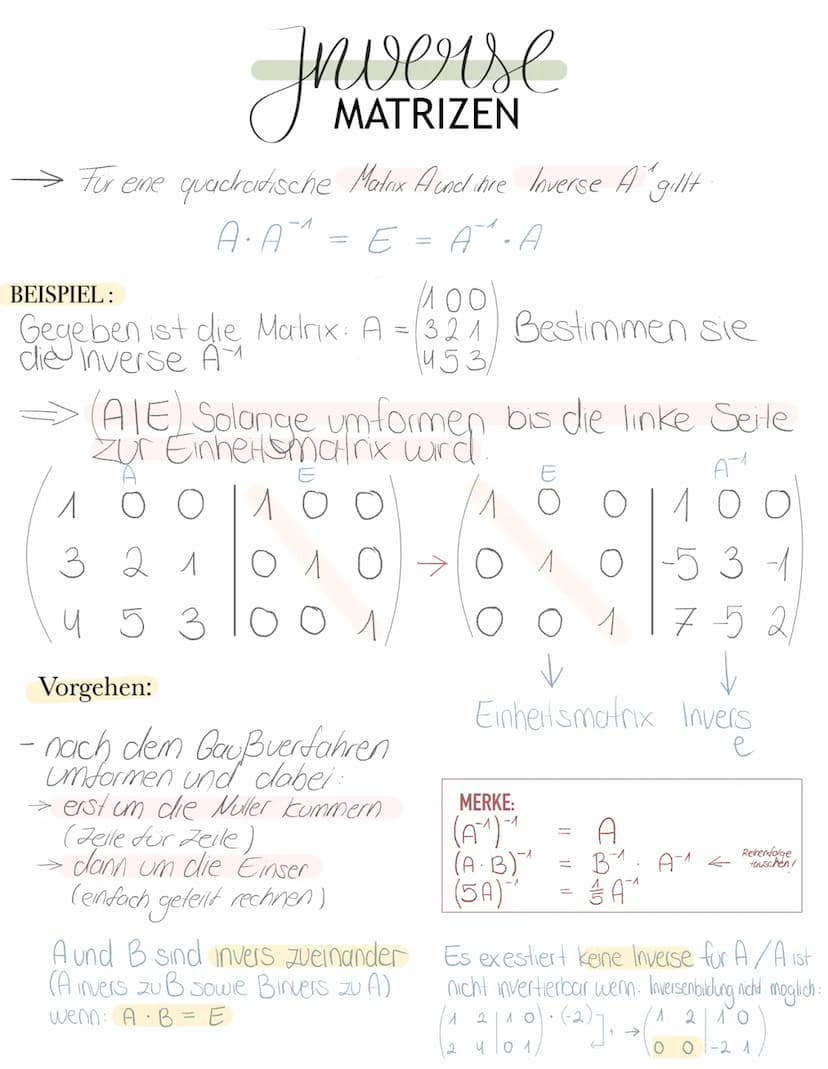 Inverse
MATRIZEN
→ Für eine quadratische Matrix A und ihre Inverse A⁻¹ gillt
A · A⁻¹ = E = A⁻¹ · A
BEISPIEL:
Gegeben ist die Matrix: A = (1 0 0 / 3 2 1 / 4 5 3) Bestimmen sie
die inverse A⁻¹
⇒ (A|E) Solange umformen bis die linke Seite
zur Einheitsmatrix wird.
A E E A⁻¹
( 1 0 0 | 1 0 0 ) ( 1 0 0 | 1 0 0 )
( 3 2 1 | 0 1 0 ) → ( 0 1 0 | -5 3 -1 )
( 4 5 3 | 0 0 1 ) ( 0 0 1 | 7 -5 2 )
↓ ↓
Einheitsmatrix Invers
e
Vorgehen:
- nach dem Gaußverfahren
umformen und dabei:
→ erst um die Nuller kümmern
(Zeile für Zeile)
→ dann um die Einser
(einfach geteilt rechnen)
MERKE:
(A⁻¹)⁻¹ = A
(A · B)⁻¹ = B⁻¹ · A⁻¹ ← Reihenfolge
tauschen!
(5A)⁻¹ = 1/5 A⁻¹
A und B sind invers zueinander
(A invers zu B sowie B invers zu A)
wenn: A · B = E
Es exestiert keine Inverse für A / A ist
nicht invertierbar wenn: Inversenbildung nicht möglich:
( 1 2 | 1 0 ) · (-2) + → ( 1 2 | 1 0 )
( 2 4 | 0 1 ) ( 0 0 | -2 1 )